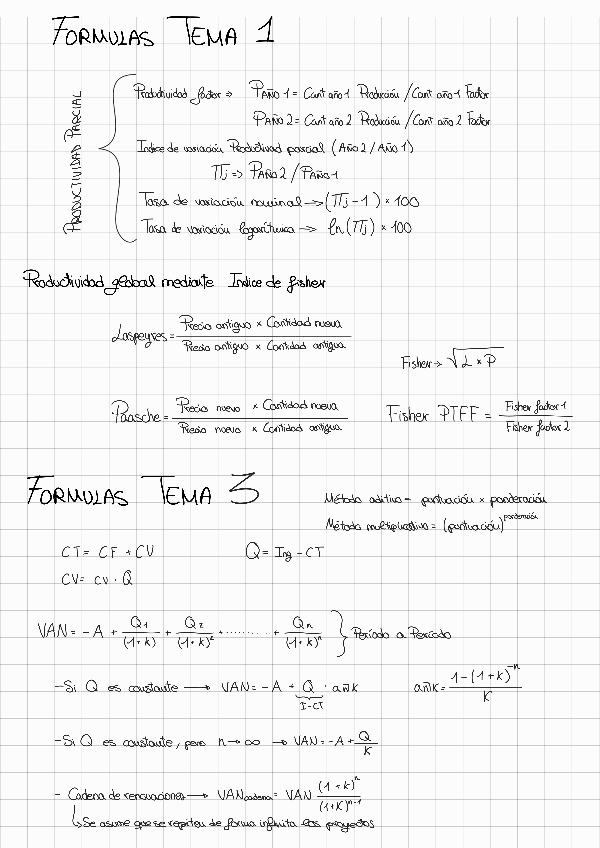 FORMULAS TEMA 1
PRODUCTIVIDAD PARCIAL
Productividad factor => P AÑO 1 = Cant año 1 Producción / Cant año 1 Factor
P AÑO 2 = Cant año 2 Producción / Cant año 2 Factor
Indice de variación Productividad parcial (AÑO 2 / AÑO 1)
Πj => P AÑO 2 / P AÑO 1
Tasa de variación nominal → (Πj - 1) × 100
Tasa de variación logarítmica → ln (Πj) × 100
Productividad global mediante Indice de fisher
Laspeyres = (Precio antiguo × Cantidad nueva) / (Precio antiguo × Cantidad antigua)
Fisher → √(L × P)
Paasche = (Precio nuevo × Cantidad nueva) / (Precio nuevo × Cantidad antigua)
Fisher PTFF = Fisher factor 1 / Fisher factor 2
FORMULAS TEMA 3
Método aditivo = puntuación × ponderación
Método multiplicativo = (puntuación)^ponderación
CT = CF + CV
Q = Ing - CT
CV = cv · Q
VAN = -A + Q1/(1+k) + Q2/(1+k)² + ......... + Qn/(1+k)^n } Período a Período
- Si Q es constante → VAN = -A + Q · an̄k
I-CT
an̄k = (1-(1+k)^-n) / K
- Si Q es constante, pero n → ∞ → VAN = -A + Q/K
- Cadena de renovaciones → VAN cadena = VAN (1+k)^n / (1+K)^n-1
↳ Se asume que se repiten de forma infinita los proyectos